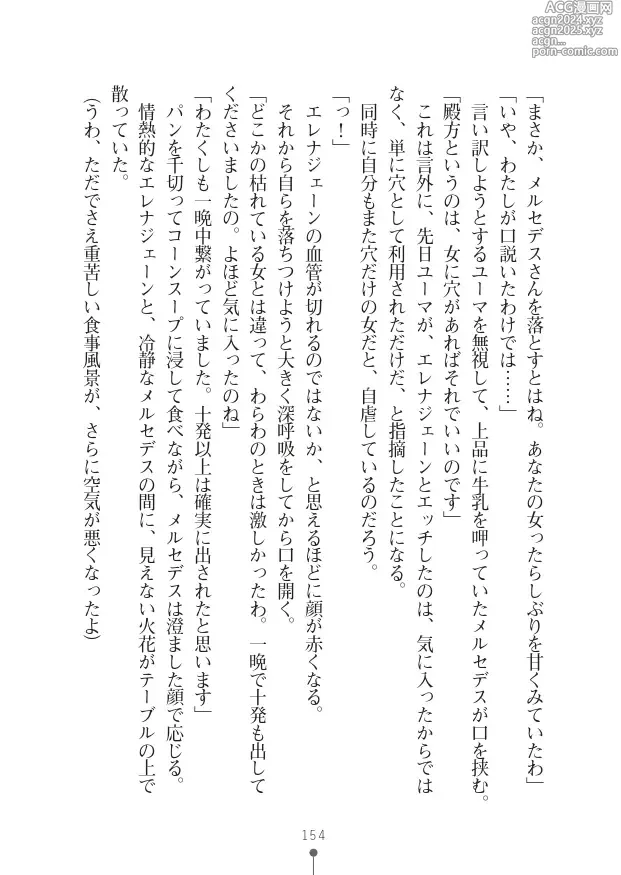 「まさか、メルセデスさんを落とすとはね。あなたの女ったらしぶりを甘くみていたわ」
「いや、わたしが口説いたわけでは……」
言い訳しようとするユーマを無視して、上品に牛乳を呷っていたメルセデスが口を挟む。
「殿方というのは、女に穴があればそれでいいのです」
これは言外に、先日ユーマが、エレナジェーンとエッチしたのは、気に入ったからでは
なく、単に穴として利用されただけだ、と指摘したことになる。
同時に自分もまた穴だけの女だと、自虐しているのだろう。
「っ！」
エレナジェーンの血管が切れるのではないか、と思えるほどに顔が赤くなる。
それから自らを落ちつけようと大きく深呼吸をしてから口を開く。
「どこかの枯れている女とは違って、わらわのときは激しかったわ。一晩で十発も出して
くださいましたの。よほど気に入ったのね」
「わたくしも一晩中繋がっていました。十発以上は確実に出されたと思います」
パンを千切ってコーンスープに浸して食べながら、メルセデスは澄ました顔で応じる。
情熱的なエレナジェーンと、冷静なメルセデスの間に、見えない火花がテーブルの上で
散っていた。
（うわ、ただでさえ重苦しい食事風景が、さらに空気が悪くなったよ）
154
ACG漫画网
acgn2024.xyz
acgn2025.xyz
porn-comic.com